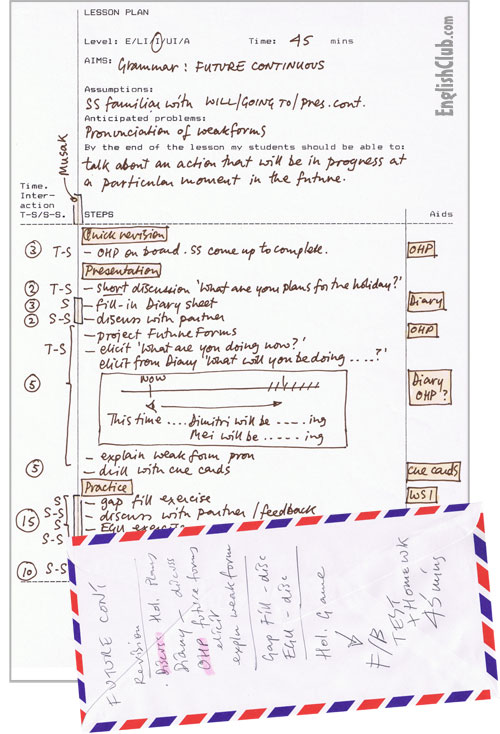 LESSON PLAN
Level: E/LI/I/UI/A Time: 45 mins
AIMS: Grammar: FUTURE CONTINUOUS
Assumptions:
SS familiar with WILL/GOING TO/pres. cont.
Anticipated problems:
Pronunciation of weakforms
By the end of the lesson my students should be able to:
talk about an action that will be in progress at
a particular moment in the future.
EnglishClub.com
Musak
Time.
Inter-
action
T-S/S-S. STEPS Aids
Quick revision
3 T-S - OHP on board. SS come up to complete. OHP
Presentation
2 T-S - short discussion 'What are your plans for the holiday?'
3 S - fill-in Diary sheet Diary
2 S-S - discuss with partner
- project Future Forms OHP
T-S - elicit 'What are you doing now?'
elicit from Diary 'What will you be doing ....?'
5 Diary
OHP?
NOW
This time .... Dimitri will be ---- ing
Mei will be ---- ing
- explain weak form pron
5 - drill with cue cards cue cards
Practice
S - gap fill exercise WS1
15 S-S - discuss with partner/feedback
S - EGU
S-S
10 S-S
FUTURE CONT
Revision
Discuss Hol. Plans
Diary - discuss
OHP future forms
elicit
explain weak form
Gap Fill - disc
EGU - disc
Hol. Game
F/B
TEST
+ HOMEWK
45 mins